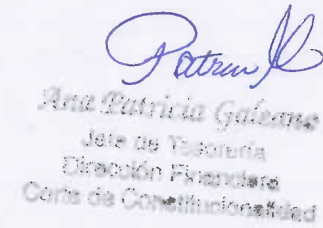 Ana Patricia Galeano
Jefe de Tesorería
Dirección Financiera
Corte de Constitucionalidad